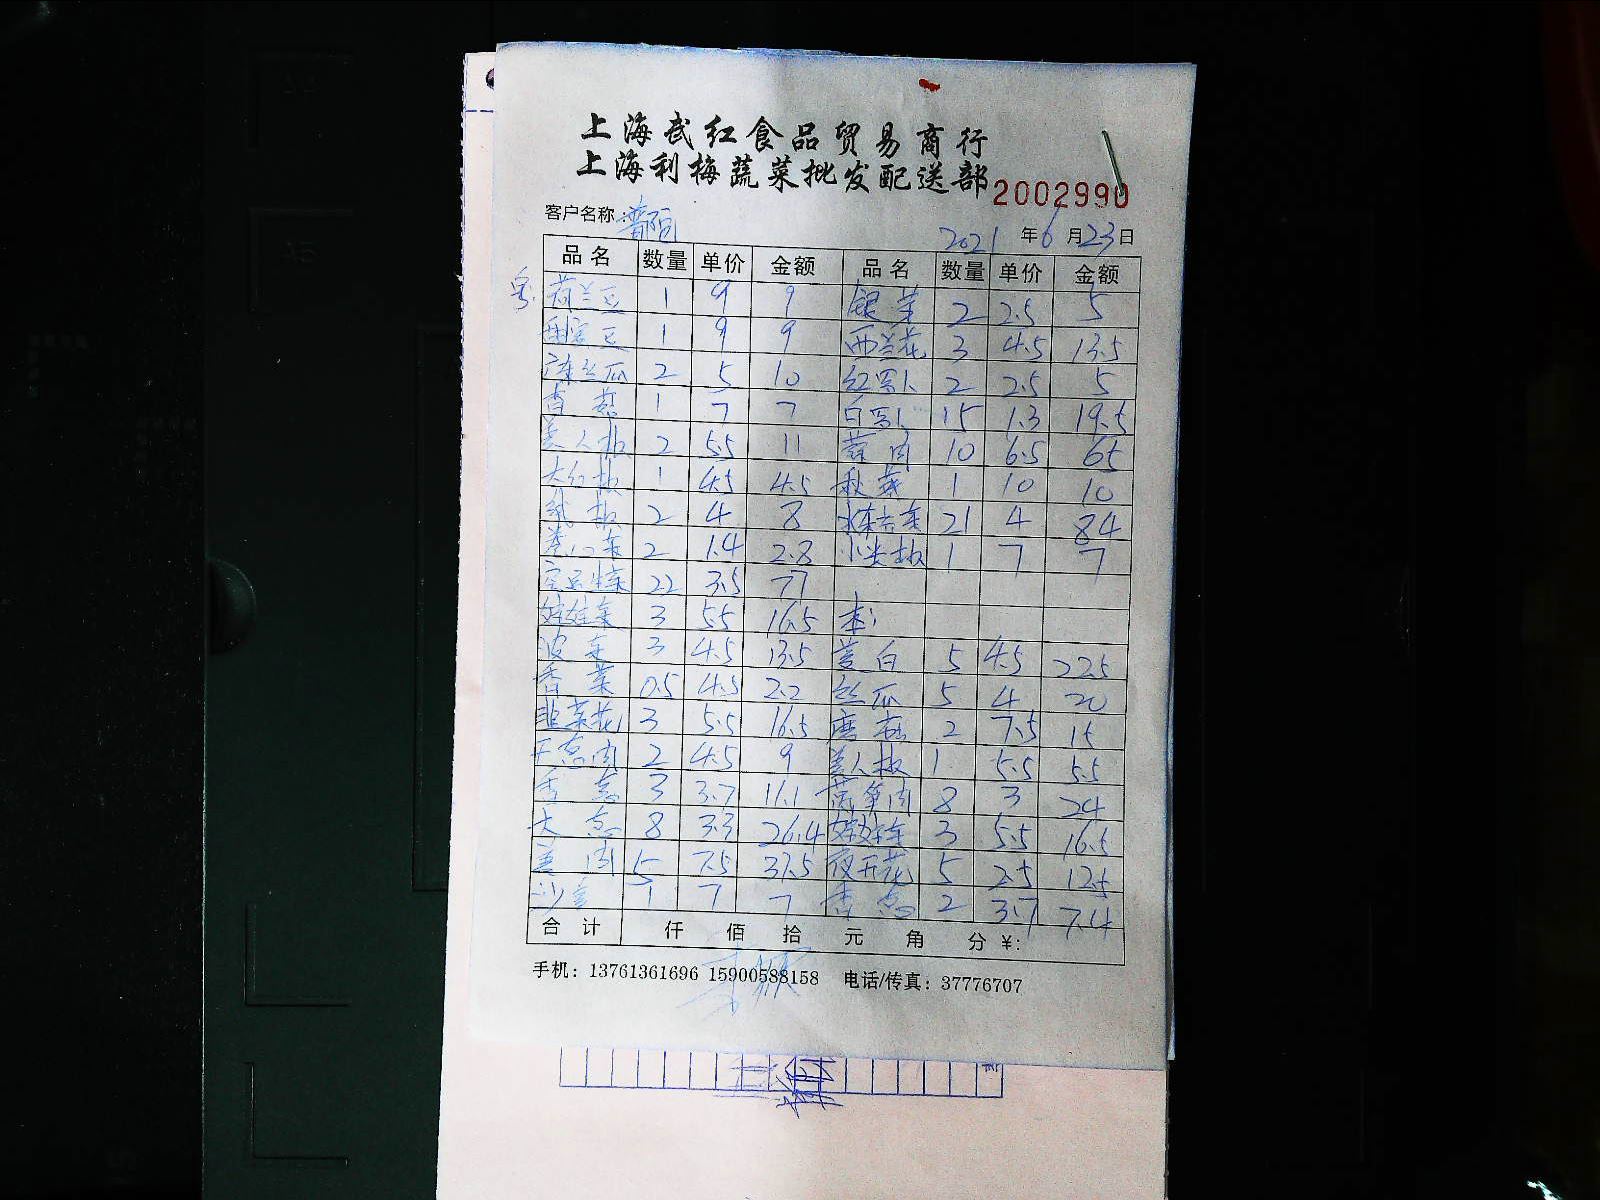 上海武红食品贸易商行
上海利梅蔬菜批发配送部 2002990
客户名称：
2021年6月23日
品名 数量 单价 金额 品名 数量 单价 金额
荷兰豆 1 9 9 银芽 2 2.5 5
1 9 9 西兰花 3 4.5 13.5
广东丝瓜 2 5 10 红萝卜 2 2.5 5
香菇 1 7 7 白萝卜 15 1.3 19.5
美人椒 2 5.5 11 蒜肉 10 6.5 65
大红椒 1 4.5 4.5 秋葵 1 10 10
2 4 8 21 4 84
卷心菜 2 1.4 2.8 小米椒 1 7 7
22 3.5 77
娃娃菜 3 5.5 16.5 本:
波菜 3 4.5 13.5 茭白 5 4.5 22.5
香菜 0.5 4.5 2.2 丝瓜 5 4 20
韭菜花 3 5.5 16.5 蘑菇 2 7.5 15
干葱肉 2 4.5 9 美人椒 1 5.5 5.5
香葱 3 3.7 11.1 莴笋肉 8 3 24
大葱 8 3.3 26.4 娃娃菜 3 5.5 16.5
姜肉 5 7.5 37.5 夜开花 5 2.5 12.5
沙姜 1 7 7 香葱 2 3.7 7.4
合计 仟 佰 拾 元 角 分 ¥:
手机：13761361696 15900588158 电话/传真：37776707